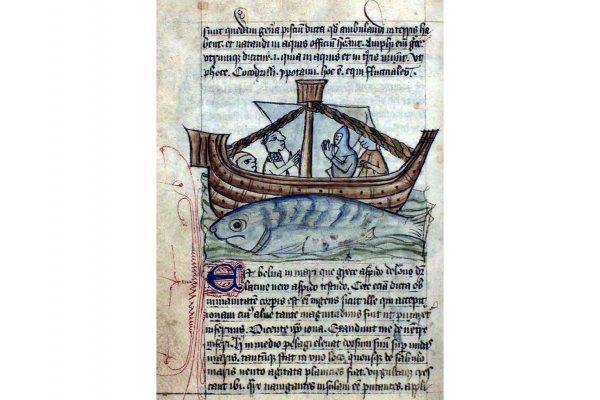 sunt quedam gena pisciū dicta qd ambulandi in terris ha
bent. et natandi in aquis officiū hēant. Amphi em̄ gre
utrumque dicitur. i. quia in aquis et in tris uiuūt. Vt
phoce. Cocodrilli. ypotami. hoc ē. equi fluctuales.
Est belua in mari que grece aspido delone dr
latine uero aspido testudo. Cete etiā dicta ob
immanitatem corpis est em̄ ingens sicut ille qui accepit
ionam cuiꝰ aluꝰ tante magnitudinis fuit ut putaret
infernus. Dicente ipo iona. Exaudiuit me de uentre
inferi. in medio pelagi eleuat dorsum suū sup undas
maris. stat in uno loco. quousque de sabulo
maris uento agitata planicies fiat.
cant ibi. nauigantes insulam eē putantes. appli